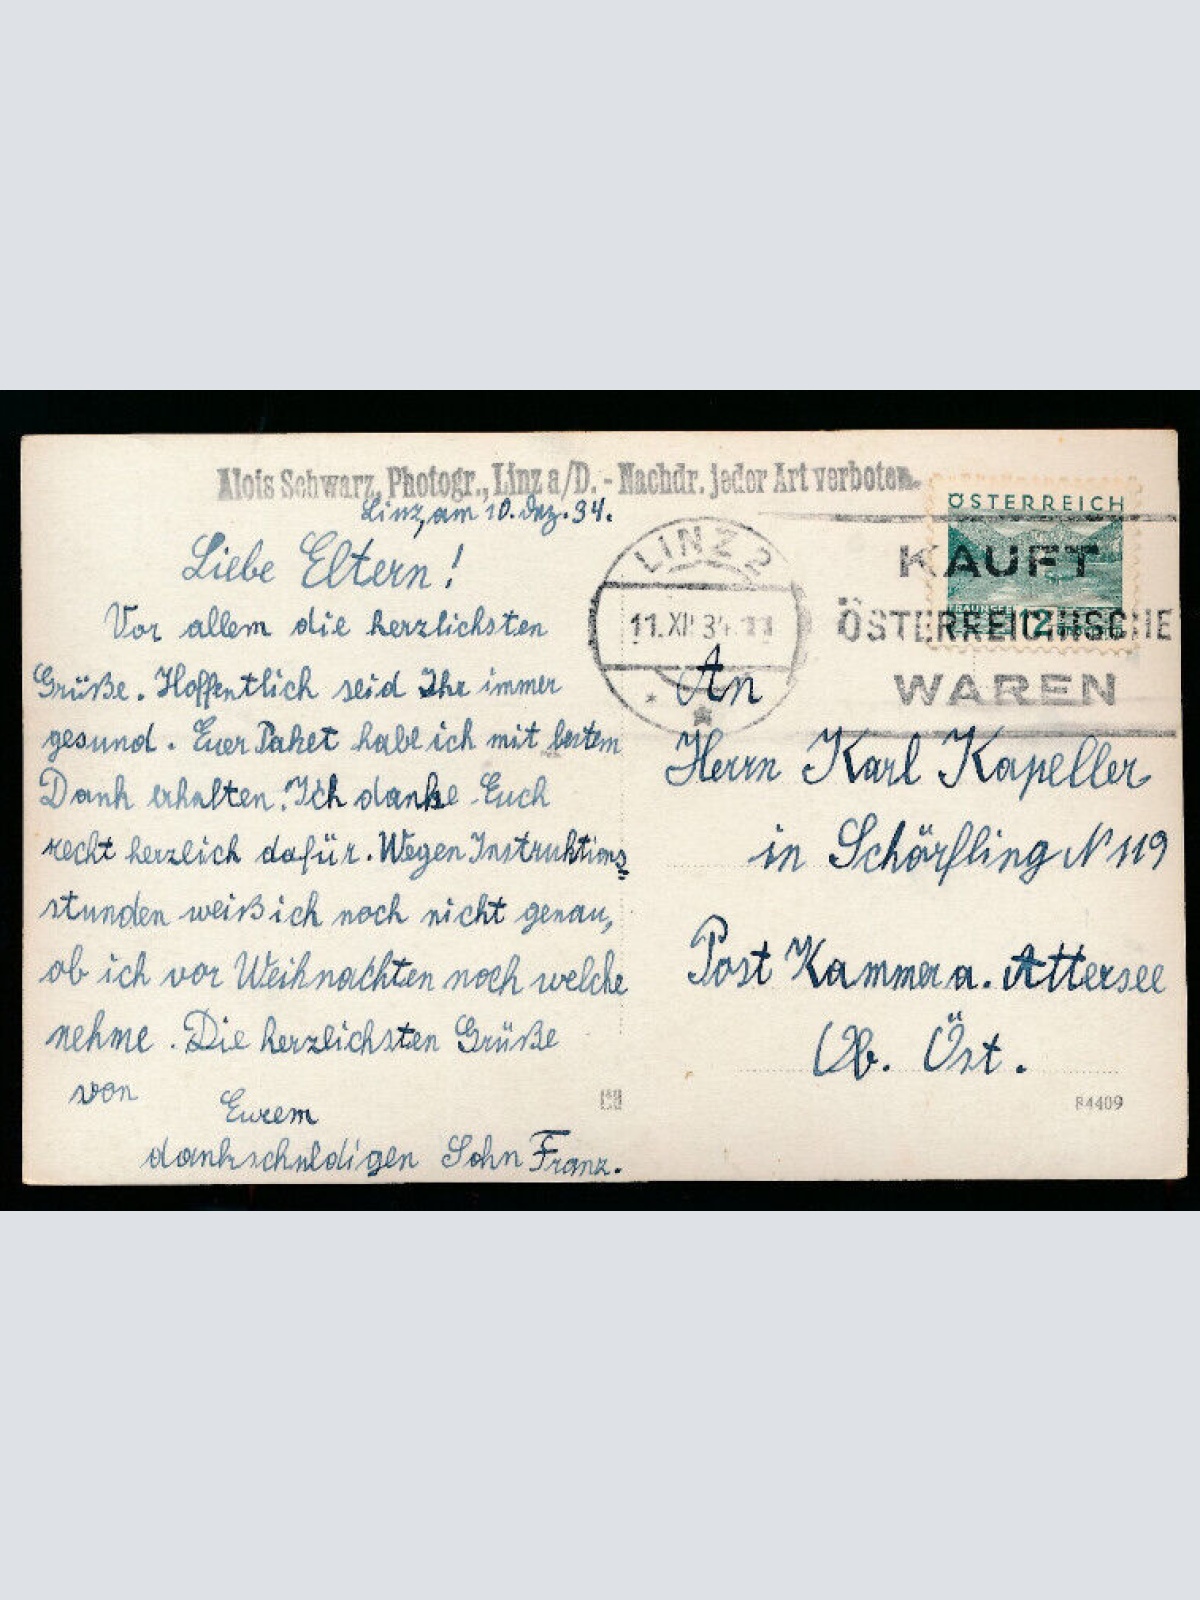 Alois Schwarz, Photogr., Linz a/D. - Nachdr. jeder Art verboten.
Linz, am 10. Dez. 34.
Liebe Eltern!
Vor allem die herzlichsten
Grüße. Hoffentlich seid Ihr immer
gesund. Euer Paket habe ich mit bestem
Dank erhalten. Ich danke Euch
recht herzlich dafür. Wegen Instruktions-
stunden weiß ich noch nicht genau,
ob ich vor Weihnachten noch welche
nehme. Die herzlichsten Grüße
von
Eurem
dankschuldigen Sohn Franz.
LINZ 2
11.XII.34.11
ÖSTERREICH
TRAUNSEE 12
KAUFT
ÖSTERREICHISCHE
WAREN
An
Herrn Karl Kapeller
in Schörfling N 119
Post Kammer a. Attersee
Ob. Öst.
84409